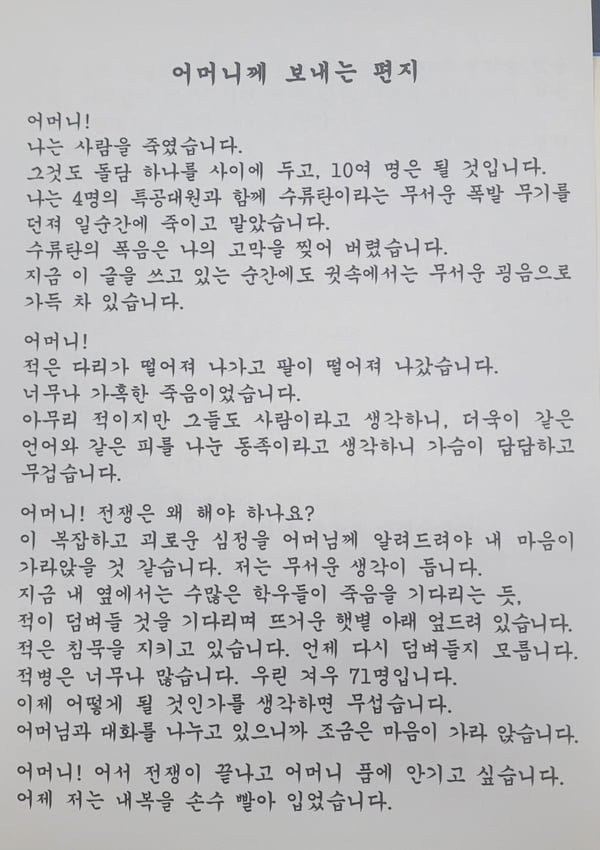 어머니께 보내는 편지
어머니!
나는 사람을 죽였습니다.
그것도 돌담 하나를 사이에 두고, 10여 명은 될 것입니다.
나는 4명의 특공대원과 함께 수류탄이라는 무서운 폭발 무기를
던져 일순간에 죽이고 말았습니다.
수류탄의 폭음은 나의 고막을 찢어 버렸습니다.
지금 이 글을 쓰고 있는 순간에도 귓속에서는 무서운 굉음으로
가득 차 있습니다.
어머니!
적은 다리가 떨어져 나가고 팔이 떨어져 나갔습니다.
너무나 가혹한 죽음이었습니다.
아무리 적이지만 그들도 사람이라고 생각하니, 더욱이 같은
언어와 같은 피를 나눈 동족이라고 생각하니 가슴이 답답하고
무겁습니다.
어머니! 전쟁은 왜 해야 하나요?
이 복잡하고 괴로운 심정을 어머님께 알려드려야 내 마음이
가라앉을 것 같습니다. 저는 무서운 생각이 듭니다.
지금 내 옆에서는 수많은 학우들이 죽음을 기다리는 듯,
적이 덤벼들 것을 기다리며 뜨거운 햇볕 아래 엎드려 있습니다.
적은 침묵을 지키고 있습니다. 언제 다시 덤벼들지 모릅니다.
적병은 너무나 많습니다. 우린 겨우 71명입니다.
이제 어떻게 될 것인가를 생각하면 무섭습니다.
어머님과 대화를 나누고 있으니까 조금은 마음이 가라 앉습니다.
어머니! 어서 전쟁이 끝나고 어머니 품에 안기고 싶습니다.
어제 저는 내복을 손수 빨아 입었습니다.